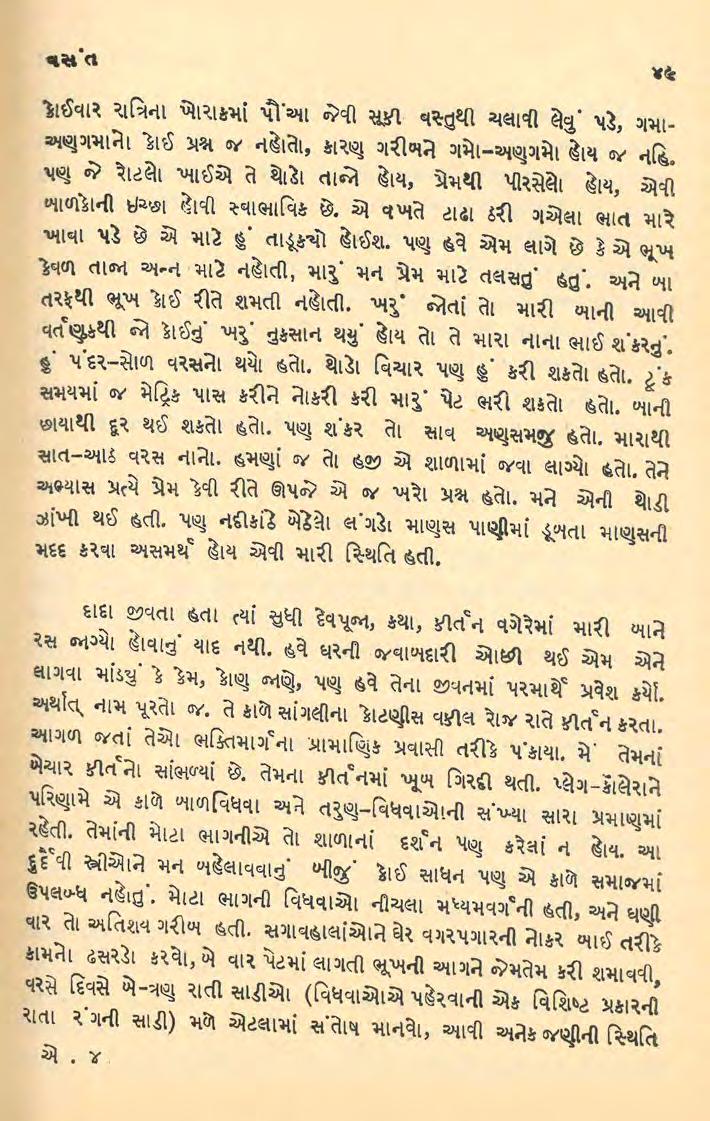 વસંત
૪૯
કોઈવાર રાત્રિના ખોરાકમાં પૌંઆ જેવી સૂકી વસ્તુથી ચલાવી લેવું પડે, ગમા-
અણગમાનો કોઈ પ્રશ્ન જ નહોતો, કારણ ગરીબને ગમો-અણગમો હોય જ નહિ.
પણ જે રોટલો ખાઈએ તે થોડો તાજો હોય, પ્રેમથી પીરસેલો હોય, એવી
બાળકોની ઇચ્છા હોવી સ્વાભાવિક છે. એ વખતે ટાઢા ઠરી ગએલા ભાત મારે
ખાવા પડે છે એ માટે હું તાડૂક્યો હોઈશ. પણ હવે એમ લાગે છે કે એ ભૂખ
કેવળ તાજા અન્ન માટે નહોતી, મારું મન પ્રેમ માટે તલસતું હતું. અને બા
તરફથી ભૂખ કોઈ રીતે શમતી નહોતી. ખરું જોતાં તો મારી બાની આવી
વર્તણુકથી જો કોઈનું ખરું નુકસાન થયું હોય તો તે મારા નાના ભાઈ શંકરનું.
હું પંદર-સોળ વરસનો થયો હતો. થોડો વિચાર પણ હું કરી શકતો હતો. ટૂંક
સમયમાં જ મેટ્રિક પાસ કરીને નોકરી કરી મારું પેટ ભરી શકતો હતો. બાની
છાયાથી દૂર થઈ શકતો હતો. પણ શંકર તો સાવ અણસમજુ હતો. મારાથી
સાત-આઠ વરસ નાનો. હમણાં જ તો હજી એ શાળામાં જવા લાગ્યો હતો. તેને
અભ્યાસ પ્રત્યે પ્રેમ કેવી રીતે ઊપજે એ જ ખરો પ્રશ્ન હતો. મને એની થોડી
ઝાંખી થઈ હતી. પણ નદીકાંઠે બેઠેલો લંગડો માણસ પાણીમાં ડૂબતા માણસની
મદદ કરવા અસમર્થ હોય એવી મારી સ્થિતિ હતી.
દાદા જીવતા હતા ત્યાં સુધી દેવપૂજા, કથા, કીર્તન વગેરેમાં મારી બાને
રસ જાગ્યો હોવાનું યાદ નથી. હવે ઘરની જવાબદારી ઓછી થઈ એમ એને
લાગવા માંડ્યું કે કેમ, કોણ જાણે, પણ હવે તેના જીવનમાં પરમાર્થે પ્રવેશ કર્યો.
અર્થાત્ નામ પૂરતો જ. તે કાળે સાંગલીના કોટણીસ વકીલ રોજ રાતે કીર્તન કરતા.
આગળ જતાં તેઓ ભક્તિમાર્ગના પ્રામાણિક પ્રવાસી તરીકે પંકાયા. મેં તેમનાં
બેચાર કીર્તનો સાંભળ્યાં છે. તેમના કીર્તનમાં ખૂબ ગિરદી થતી. પ્લેગ-કૉલેરાને
પરિણામે એ કાળે બાળવિધવા અને તરુણ-વિધવાઓની સંખ્યા સારા પ્રમાણમાં
રહેતી. તેમાંની મોટા ભાગનીએ તો શાળાનાં દર્શન પણ કરેલાં ન હોય. આ
દુર્દૈવી સ્ત્રીઓને મન બહેલાવવાનું બીજું કોઈ સાધન પણ એ કાળે સમાજમાં
ઉપલબ્ધ નહોતું. મોટા ભાગની વિધવાઓ નીચલા મધ્યમવર્ગની હતી, અને ઘણી
વાર તો અતિશય ગરીબ હતી. સગાવહાલાંઓને ઘેર વગરપગારની નોકર બાઈ તરીકે
કામનો ઢસરડો કરવો, બે વાર પેટમાં લાગતી ભૂખની આગને જેમતેમ કરી શમાવવી,
વરસે દિવસે બે-ત્રણ રાતી સાડીઓ (વિધવાઓએ પહેરવાની એક વિશિષ્ટ પ્રકારની
રાતા રંગની સાડી) મળે એટલામાં સંતોષ માનવો, આવી અનેક જણીની સ્થિતિ
એ . ૪